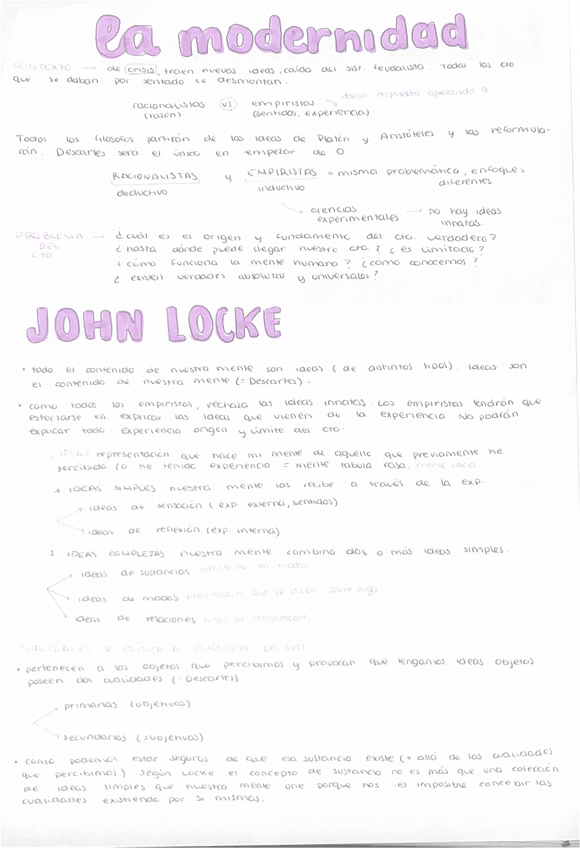 la modernidad
CONTEXTO → de crisis, traen nuevas ideas, caída del sist. feudalista. Todos los cto.
que se daban por sentado se desmontan.
daban respuesta apelando a
racionalistas vs empiristas
(razón) (sentidos, experiencia)
Todos los filósofos partirán de las ideas de Platón y Aristóteles y las reformula-
rán. Descartes será el único en empezar de 0.
RACIONALISTAS y EMPIRISTAS = misma problemática, enfoques
deductivo inductivo diferentes
ciencias → no hay ideas
experimentales innatas.
PROBLEMA → ¿cuál es el origen y fundamento del cto. verdadero?
DEL ¿hasta dónde puede llegar nuestro cto.? ¿es limitado?
CTO ¿cómo funciona la mente humana? ¿cómo conocemos?
¿existen verdades absolutas y universales?
JOHN LOCKE
• todo el contenido de nuestra mente son ideas (de distintos tipos). Ideas son
el contenido de nuestra mente (= Descartes).
• como todos los empiristas, rechaza las ideas innatas. Los empiristas tendrán que
esforzarse en explicar las ideas que vienen de la experiencia. No podrán
explicar todo. Experiencia origen y límite del cto.
¿IDEA? representación que hace mi mente de aquello que previamente he
percibido (o he tenido experiencia = mente tabula rasa, mente vacía
1. IDEAS SIMPLES nuestra mente las recibe a través de la exp.
ideas de sensación (exp externa, sentidos)
ideas de reflexión (exp. interna)
2. IDEAS COMPLEJAS nuestra mente combina dos o más ideas simples.
ideas de sustancias soporte de los modos
ideas de modos que se dicen sobre algo
ideas de relaciones
CUALIDADES Y CRÍTICA AL DE SUST.
• pertenecen a los objetos que percibimos y provocan que tengamos ideas objetos
poseen dos cualidades (= Descartes).
primarias (objetivas)
secundarias (subjetivas)
• cómo podemos estar seguros de que esa sustancia existe (+ allá de las cualidades
que percibimos). Según Locke el concepto de sustancia no es más que una colección
de ideas simples que nuestra mente une porque nos es imposible concebir las
cualidades existiendo por sí mismas.